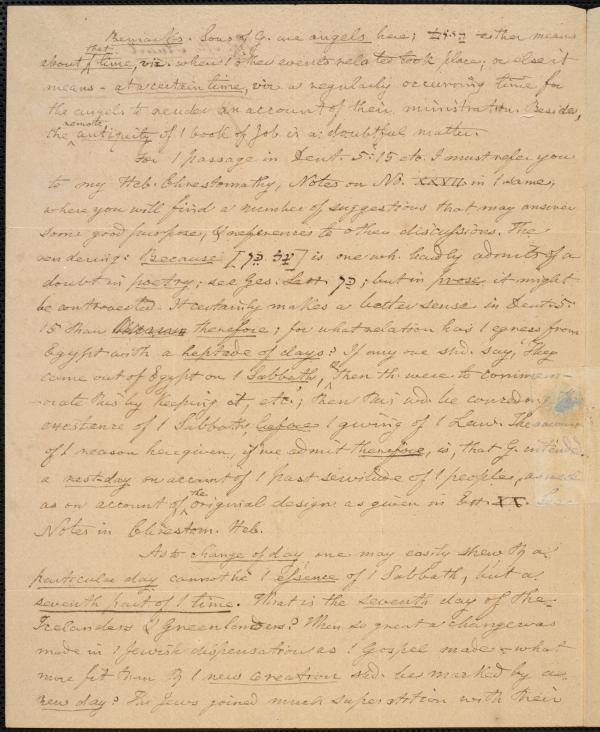 Remarks. Sons of G. are angels here; היום either means
about that time, viz. when 1 other events related took place; or else it
means - at a certain time, viz a regularly occurring time for
the angels to render an account of their ministration. Besides,
the remote antiquity of 1 book of Job is a doubtful matter.
For 1 passage in Deut. 5:15 etc. I must refer you
to my Heb. Chrestomathy, Notes on No. XXVII in 1 same,
where you will find a number of suggestions that may answer
some good purpose, & references to other discussions. The
rendering: Because [על כן] is one wh. hardly admits of a
doubt in poetry; see Ges. Lex. כן; but in prose it might
be controverted. It certainly makes a better sense in Deut. 5:
15 than therefore; for what relation has 1 egress from
Egypt with a heptade of days? If any one shd. say, "They
came out of Egypt on 1 Sabbath, & then th. were to commem-
-orate this by keeping it, etc"; then this wd. be conceding
existence of 1 Sabbath, before 1 giving of 1 Law. The
of 1 reason here given, if we admit therefore, is, that G.
a rest-day on account of 1 past servitude of 1 people, as well
as on account of the original design as given in Ex. XX. See
Notes in Chrestom. Heb.
As to change of day one may easily shew th a
particular day cannot be 1 essence of 1 Sabbath, but a
seventh part of 1 time. What is the seventh day of the
Icelanders & Greenlanders? When so great a change was
made in 1 Jewish dispensation as 1 Gospel made - what
more fit than th 1 new creation shd. be marked by a
new day? The Jews joined much superstition with their